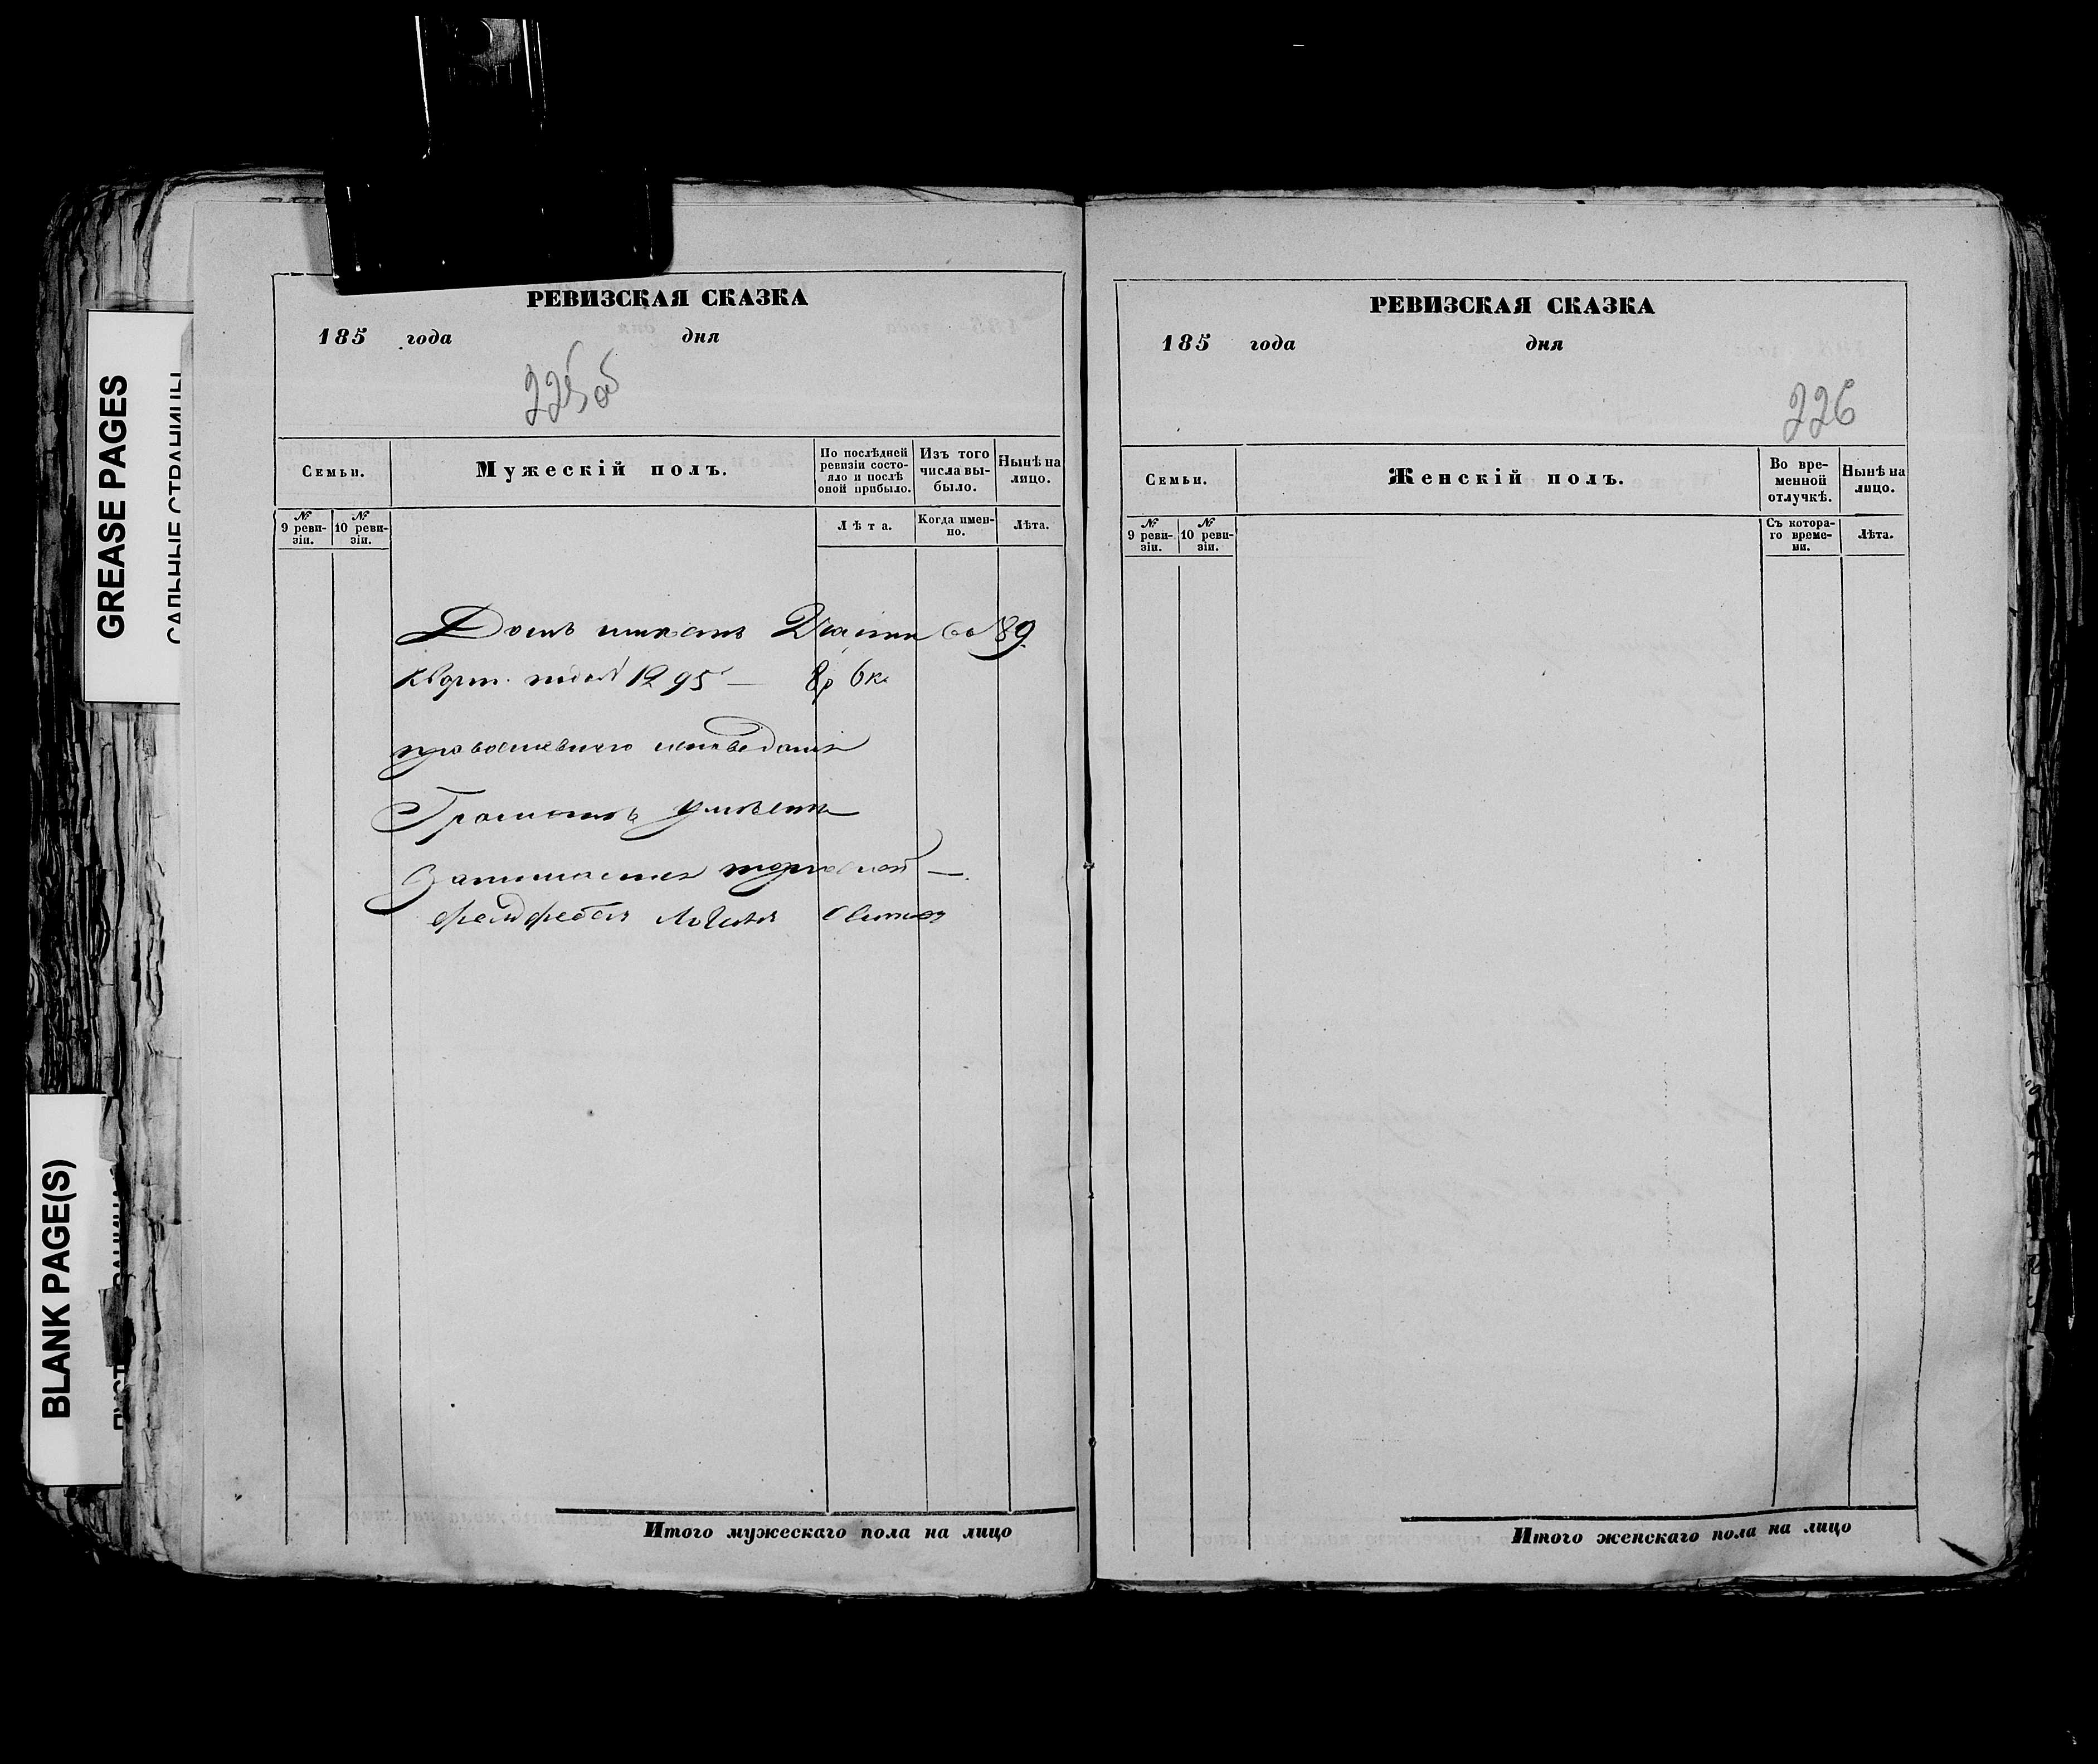 GREASE PAGES
САЛЬНЫЕ СТРАНИЦЫ
BLANK PAGE(S)
РЕВИЗСКАЯ СКАЗКА
185 года дня
225 об
Семьи.
Мужескій полъ.
По послѣдней ревизіи состояло и послѣ оной прибыло.
Изъ того числа выбыло.
Нынѣ на лицо.
№ 9 ревизіи.
№ 10 ревизіи.
Лѣта.
Когда именно.
Лѣта.
Домъ имѣетъ 2 части во 89
кварт. подъ № 1295 — 8р 6 к
православнаго исповеданія
Грамотѣ умѣетъ
Занимается торговлей —
Итого мужескаго пола на лицо
РЕВИЗСКАЯ СКАЗКА
185 года дня
226
Семьи.
Женскій полъ.
Во временной отлучкѣ.
Нынѣ на лицо.
№ 9 ревизіи.
№ 10 ревизіи.
Съ котораго времени.
Лѣта.
Итого женскаго пола на лицо